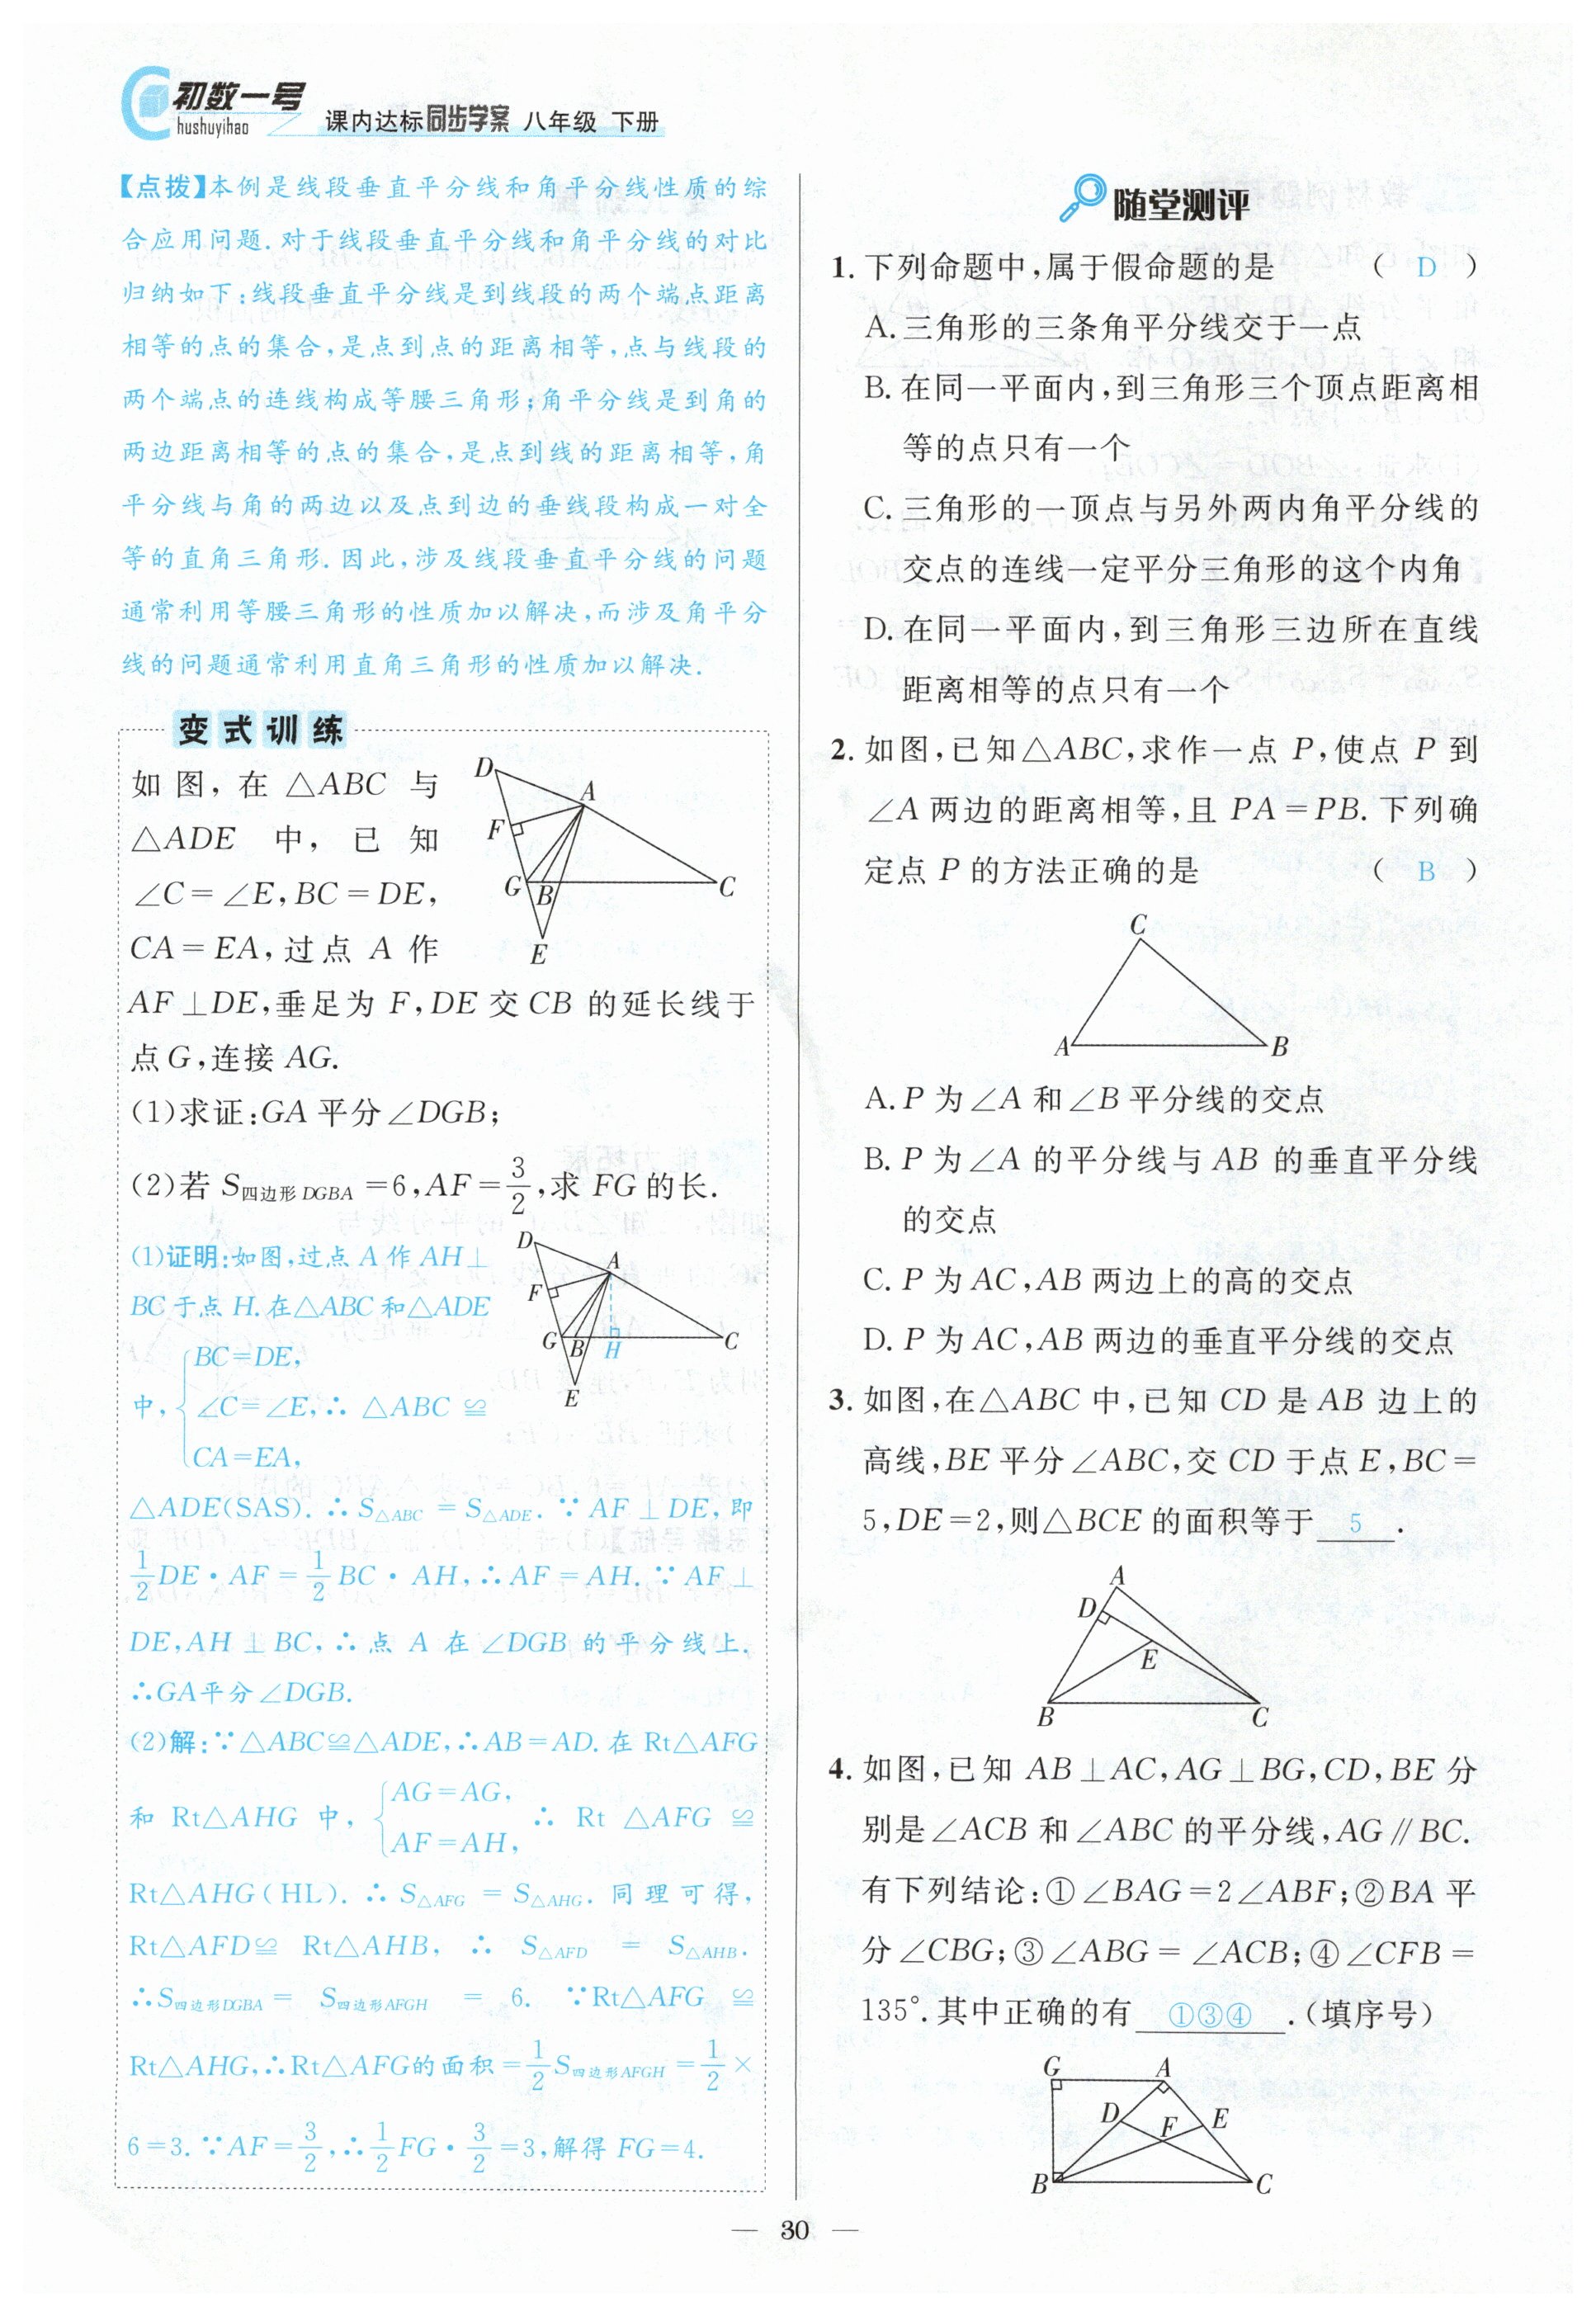 初数一号
hushuyihao
课内达标同步学案 八年级 下册
【点拨】本例是线段垂直平分线和角平分线性质的综
合应用问题.对于线段垂直平分线和角平分线的对比
归纳如下:线段垂直平分线是到线段的两个端点距离
相等的点的集合,是点到点的距离相等,点与线段的
两个端点的连线构成等腰三角形;角平分线是到角的
两边距离相等的点的集合,是点到线的距离相等,角
平分线与角的两边以及点到边的垂线段构成一对全
等的直角三角形.因此,涉及线段垂直平分线的问题
通常利用等腰三角形的性质加以解决,而涉及角平分
线的问题通常利用直角三角形的性质加以解决.
变式训练
如图,在 △ABC 与
△ADE 中,已知
∠C=∠E,BC=DE,
CA=EA,过点 A 作
AF⊥DE,垂足为 F,DE 交 CB 的延长线于
点G,连接 AG.
D
A
F
G
B
C
E
(1)求证:GA 平分∠DGB;
(2)若 S四边形DGBA=6,AF=3/2,求 FG 的长.
(1)证明:如图,过点 A 作 AH⊥
BC于点 H.在△ABC和△ADE
中,{BC=DE,
∠C=∠E,∴△ABC≌
CA=EA,
D
A
F
G
B
H
C
E
△ADE(SAS).∴S△ABC=S△ADE.∵AF⊥DE,即
1/2DE·AF=1/2BC·AH,∴AF=AH.∵AF⊥
DE,AH⊥BC,∴点 A 在∠DGB 的平分线上.
∴GA平分∠DGB.
(2)解:∵△ABC≌△ADE,∴AB=AD.在 Rt△AFG
和 Rt△AHG 中,{AG=AG,
AF=AH, ∴Rt△AFG≌
Rt△AHG(HL).∴S△AFG=S△AHG.同理可得,
Rt△AFD≌Rt△AHB,∴S△AFD=S△AHB.
∴S四边形DGBA=S四边形AFGH=6.∵Rt△AFG≌
Rt△AHG,∴Rt△AFG的面积=1/2S四边形AFGH=1/2×
6=3.∵AF=3/2,∴1/2FG·3/2=3,解得 FG=4.
随堂测评
1.下列命题中,属于假命题的是 ( D )
A.三角形的三条角平分线交于一点
B.在同一平面内,到三角形三个顶点距离相
等的点只有一个
C.三角形的一顶点与另外两内角平分线的
交点的连线一定平分三角形的这个内角
D.在同一平面内,到三角形三边所在直线
距离相等的点只有一个
2.如图,已知△ABC,求作一点 P,使点 P 到
∠A 两边的距离相等,且 PA=PB.下列确
定点 P 的方法正确的是 ( B )
C
A
B
A.P 为∠A 和∠B 平分线的交点
B.P 为∠A 的平分线与 AB 的垂直平分线
的交点
C.P 为 AC,AB 两边上的高的交点
D.P 为 AC,AB 两边的垂直平分线的交点
3.如图,在△ABC 中,已知 CD 是 AB 边上的
高线,BE 平分∠ABC,交 CD 于点 E,BC=
5,DE=2,则△BCE 的面积等于 5 .
A
D
E
B
C
4.如图,已知 AB⊥AC,AG⊥BG,CD,BE 分
别是∠ACB 和∠ABC 的平分线,AG∥BC.
有下列结论:①∠BAG=2∠ABF;②BA 平
分∠CBG;③∠ABG=∠ACB;④∠CFB=
135°.其中正确的有 ①③④ .(填序号)
G
A
D
F
E
B
C
— 30 —